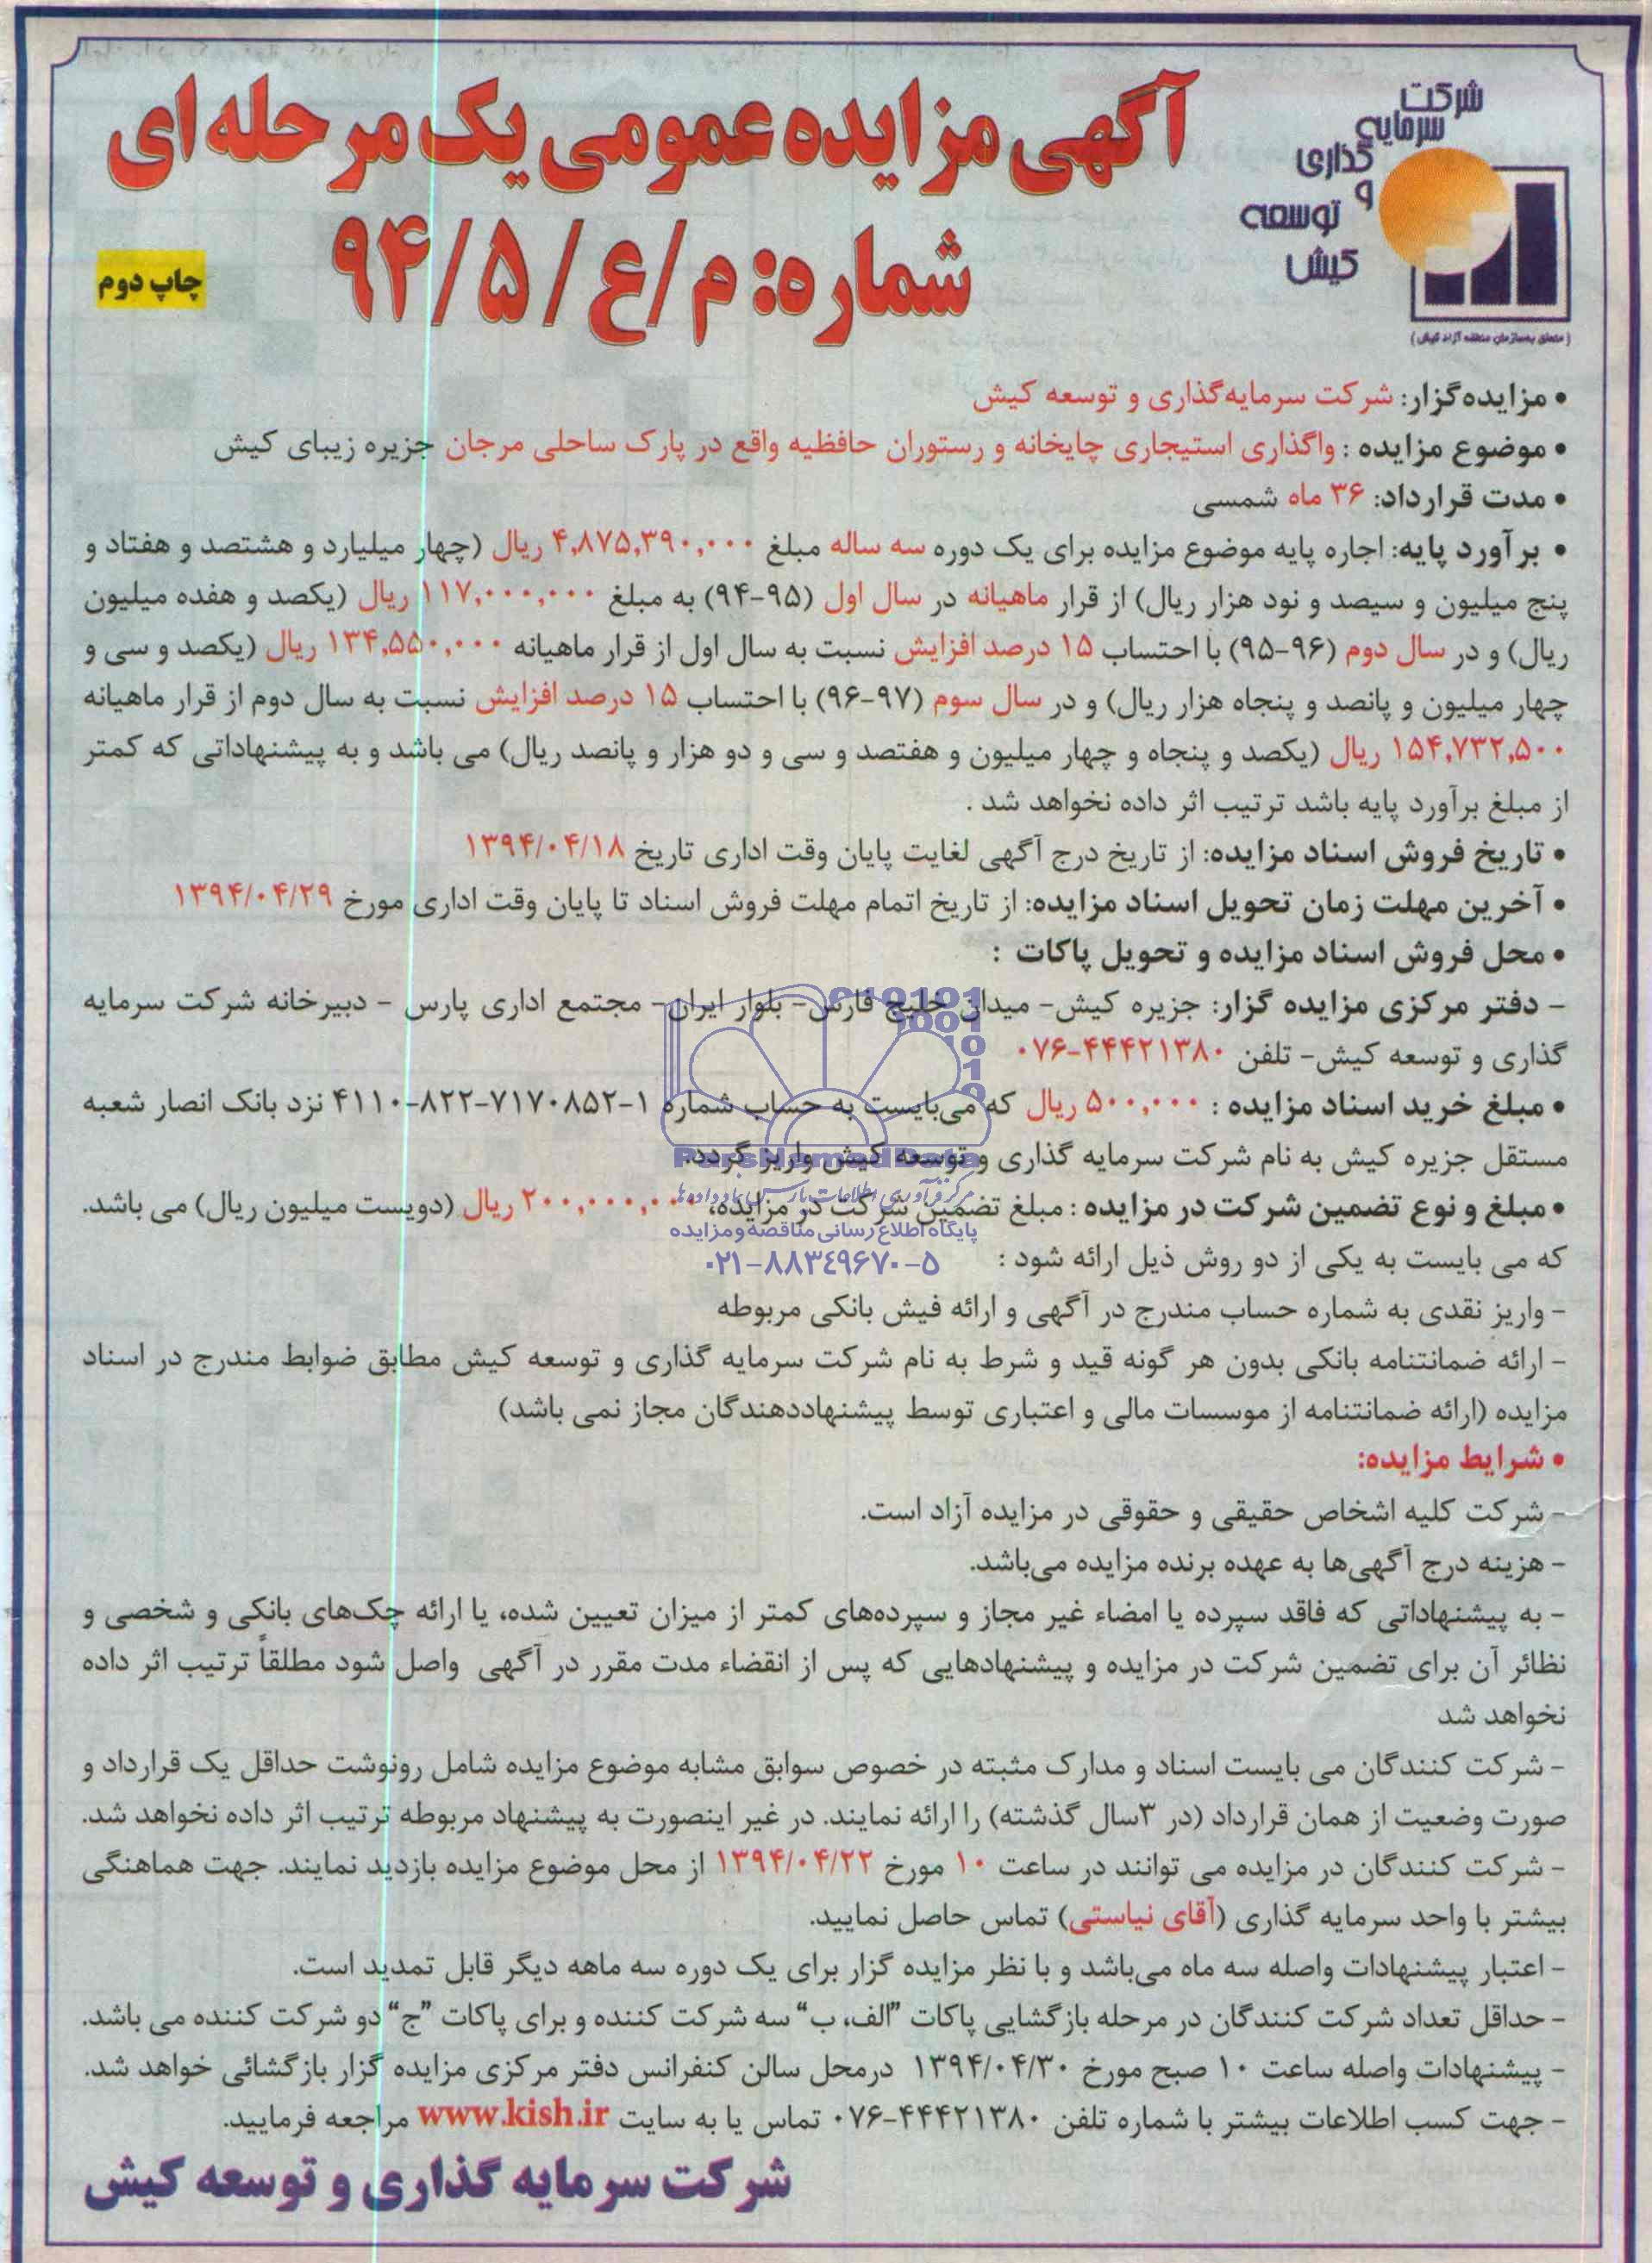 شرکت
سرمایه
گذاری
و
توسعه
کیش
(متعلق به سازمان منطقه آزاد کیش)
آگهی مزایده عمومی یک مرحله ای
شماره: م/ع/۹۴/۵
چاپ دوم
• مزایده‌گزار: شرکت سرمایه‌گذاری و توسعه کیش
• موضوع مزایده : واگذاری استیجاری چایخانه و رستوران حافظیه واقع در پارک ساحلی مرجان جزیره زیبای کیش
• مدت قرارداد: ۳۶ ماه شمسی
• برآورد پایه: اجاره پایه موضوع مزایده برای یک دوره سه ساله مبلغ ۴,۸۷۵,۳۹۰,۰۰۰ ریال (چهار میلیارد و هشتصد و هفتاد و
پنج میلیون و سیصد و نود هزار ریال) از قرار ماهیانه در سال اول (۹۵-۹۴) به مبلغ ۱۱۷,۰۰۰,۰۰۰ ریال (یکصد و هفده میلیون
ریال) و در سال دوم (۹۶-۹۵) با احتساب ۱۵ درصد افزایش نسبت به سال اول از قرار ماهیانه ۱۳۴,۵۵۰,۰۰۰ ریال (یکصد و سی و
چهار میلیون و پانصد و پنجاه هزار ریال) و در سال سوم (۹۷-۹۶) با احتساب ۱۵ درصد افزایش نسبت به سال دوم از قرار ماهیانه
۱۵۴,۷۳۲,۵۰۰ ریال (یکصد و پنجاه و چهار میلیون و هفتصد و سی و دو هزار و پانصد ریال) می باشد و به پیشنهاداتی که کمتر
از مبلغ برآورد پایه باشد ترتیب اثر داده نخواهد شد .
• تاریخ فروش اسناد مزایده: از تاریخ درج آگهی لغایت پایان وقت اداری تاریخ ۱۳۹۴/۰۴/۱۸
• آخرین مهلت زمان تحویل اسناد مزایده: از تاریخ اتمام مهلت فروش اسناد تا پایان وقت اداری مورخ ۱۳۹۴/۰۴/۲۹
• محل فروش اسناد مزایده و تحویل پاکات :
- دفتر مرکزی مزایده گزار: جزیره کیش- میدان خلیج فارس- بلوار ایران- مجتمع اداری پارس - دبیرخانه شرکت سرمایه
گذاری و توسعه کیش- تلفن ۴۴۴۲۱۳۸۰-۰۷۶
• مبلغ خرید اسناد مزایده : ۵۰۰,۰۰۰ ریال که می‌بایست به حساب شماره ۱-۷۱۷۰۸۵۲-۸۲۲-۴۱۱۰ نزد بانک انصار شعبه
مستقل جزیره کیش به نام شرکت سرمایه گذاری و توسعه کیش واریز گردد.
ParsNamadData
مرکز فرآوری اطلاعات پارس نماد داده‌ها
• مبلغ و نوع تضمین شرکت در مزایده : مبلغ تضمین شرکت در مزایده، ۲۰۰,۰۰۰,۰۰۰ ریال (دویست میلیون ریال) می باشد.
پایگاه اطلاع رسانی مناقصه و مزایده
که می بایست به یکی از دو روش ذیل ارائه شود :
۰۲۱-۸۸۳۴۹۶۷۰-۵
- واریز نقدی به شماره حساب مندرج در آگهی و ارائه فیش بانکی مربوطه
- ارائه ضمانتنامه بانکی بدون هر گونه قید و شرط به نام شرکت سرمایه گذاری و توسعه کیش مطابق ضوابط مندرج در اسناد
مزایده (ارائه ضمانتنامه از موسسات مالی و اعتباری توسط پیشنهاددهندگان مجاز نمی باشد)
• شرایط مزایده:
- شرکت کلیه اشخاص حقیقی و حقوقی در مزایده آزاد است.
- هزینه درج آگهی‌ها به عهده برنده مزایده می‌باشد.
- به پیشنهاداتی که فاقد سپرده یا امضاء غیر مجاز و سپرده‌های کمتر از میزان تعیین شده، یا ارائه چک‌های بانکی و شخصی و
نظائر آن برای تضمین شرکت در مزایده و پیشنهادهایی که پس از انقضاء مدت مقرر در آگهی واصل شود مطلقاً ترتیب اثر داده
نخواهد شد
- شرکت کنندگان می بایست اسناد و مدارک مثبته در خصوص سوابق مشابه موضوع مزایده شامل رونوشت حداقل یک قرارداد و
صورت وضعیت از همان قرارداد (در ۳سال گذشته) را ارائه نمایند. در غیر اینصورت به پیشنهاد مربوطه ترتیب اثر داده نخواهد شد.
- شرکت کنندگان در مزایده می توانند در ساعت ۱۰ مورخ ۱۳۹۴/۰۴/۲۲ از محل موضوع مزایده بازدید نمایند. جهت هماهنگی
بیشتر با واحد سرمایه گذاری (آقای نیاستی) تماس حاصل نمایید.
- اعتبار پیشنهادات واصله سه ماه می‌باشد و با نظر مزایده گزار برای یک دوره سه ماهه دیگر قابل تمدید است.
- حداقل تعداد شرکت کنندگان در مرحله بازگشایی پاکات ”الف، ب“ سه شرکت کننده و برای پاکات ”ج“ دو شرکت کننده می باشد.
- پیشنهادات واصله ساعت ۱۰ صبح مورخ ۱۳۹۴/۰۴/۳۰ درمحل سالن کنفرانس دفتر مرکزی مزایده گزار بازگشائی خواهد شد.
- جهت کسب اطلاعات بیشتر با شماره تلفن ۴۴۴۲۱۳۸۰-۰۷۶ تماس یا به سایت www.kish.ir مراجعه فرمایید.
شرکت سرمایه گذاری و توسعه کیش